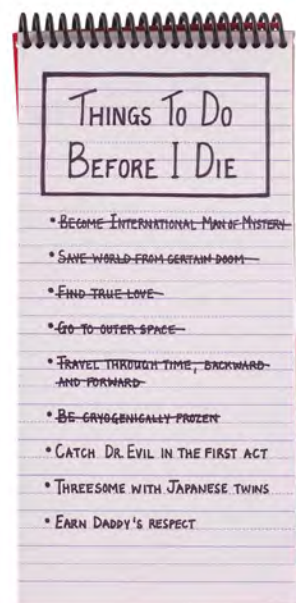 THINGS TO DO
BEFORE I DIE
• BECOME INTERNATIONAL MAN OF MYSTERY
• SAVE WORLD FROM CERTAIN DOOM
• FIND TRUE LOVE
• GO TO OUTER SPACE
• TRAVEL THROUGH TIME, BACKWARD
AND FORWARD
• BE CRYOGENICALLY FROZEN
• CATCH DR. EVIL IN THE FIRST ACT
• THREESOME WITH JAPANESE TWINS
• EARN DADDY'S RESPECT